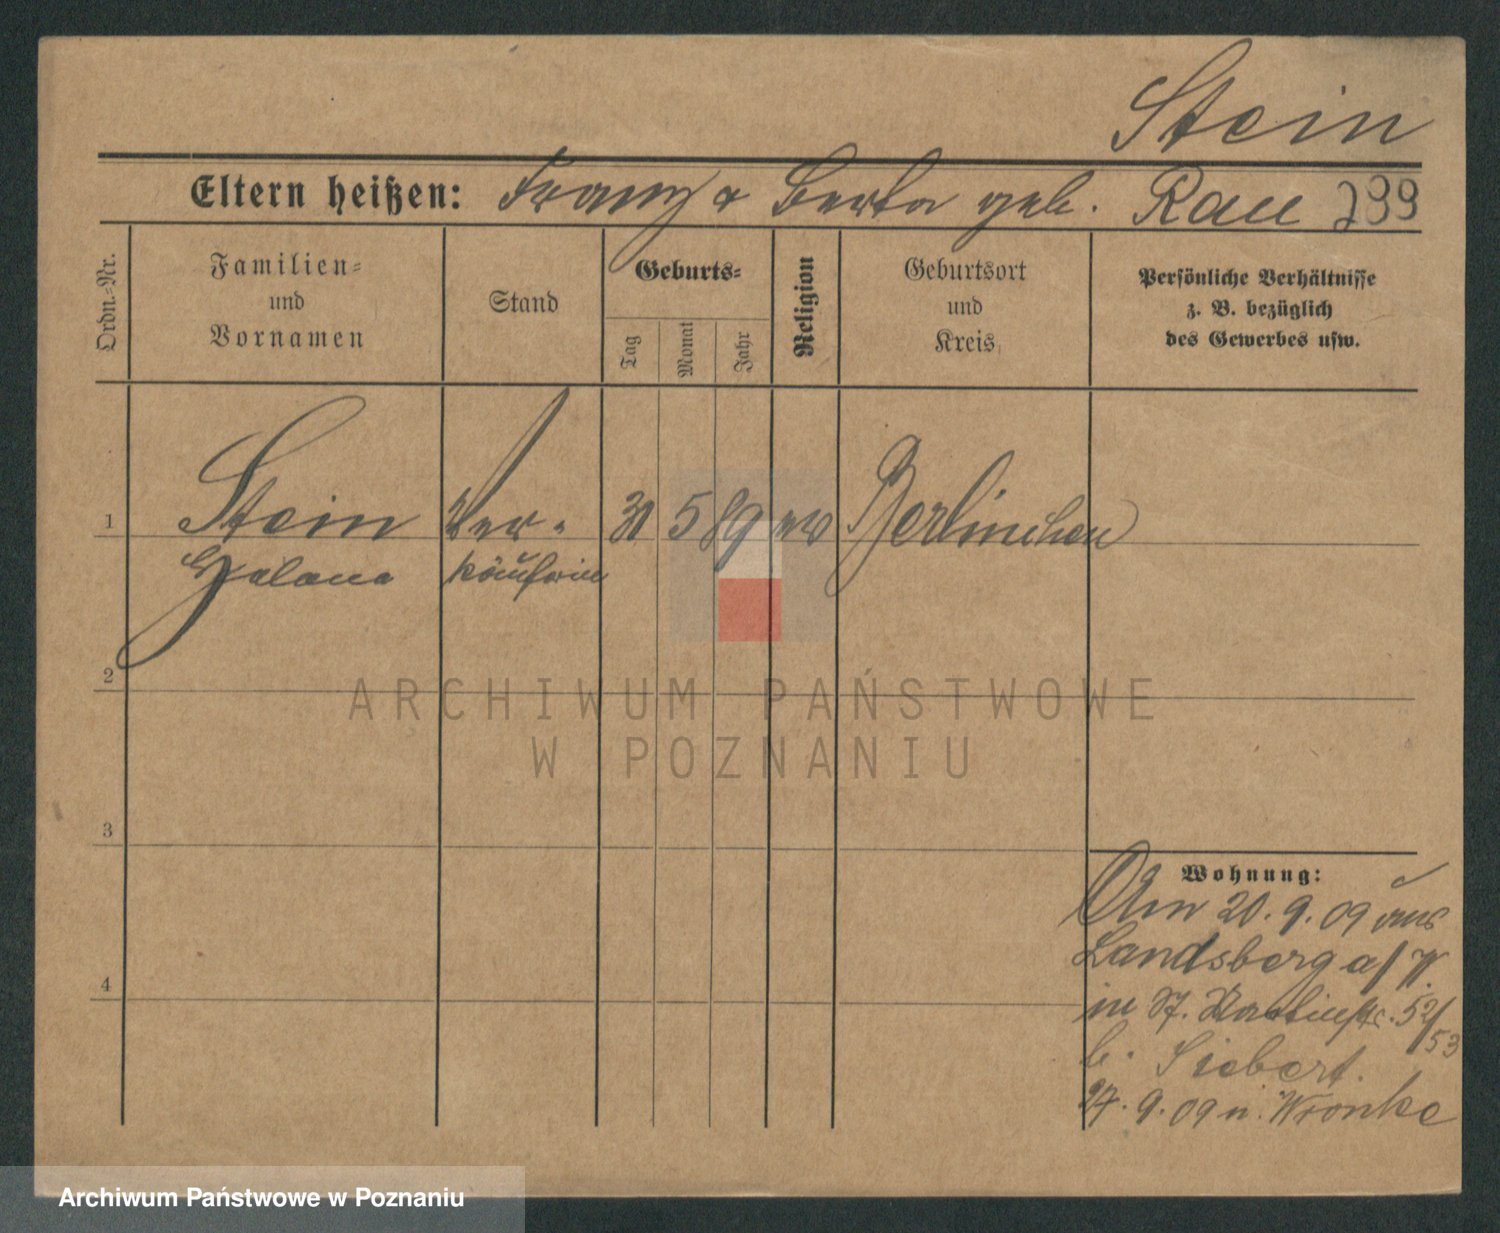 Stein
Eltern heißen: Franz & Berta geb. Rau 299
Ordn.-Nr.
Familien-
und
Vornamen
Stand
Geburts-
Tag
Monat
Jahr
Religion
Geburtsort
und
Kreis
Persönliche Verhältnisse
z. B. bezüglich
des Gewerbes usw.
1 Stein Ver- 31 5 89 ev Berlinchen
Helene käuferin
2
3
4
Wohnung:
Am 20. 9. 09 aus
Landsberg a/W.
in St. Martinstr. 52/53
b. Siebert.
27. 9. 09 n. Wronke
ARCHIWUM PAŃSTWOWE
W POZNANIU
Archiwum Państwowe w Poznaniu